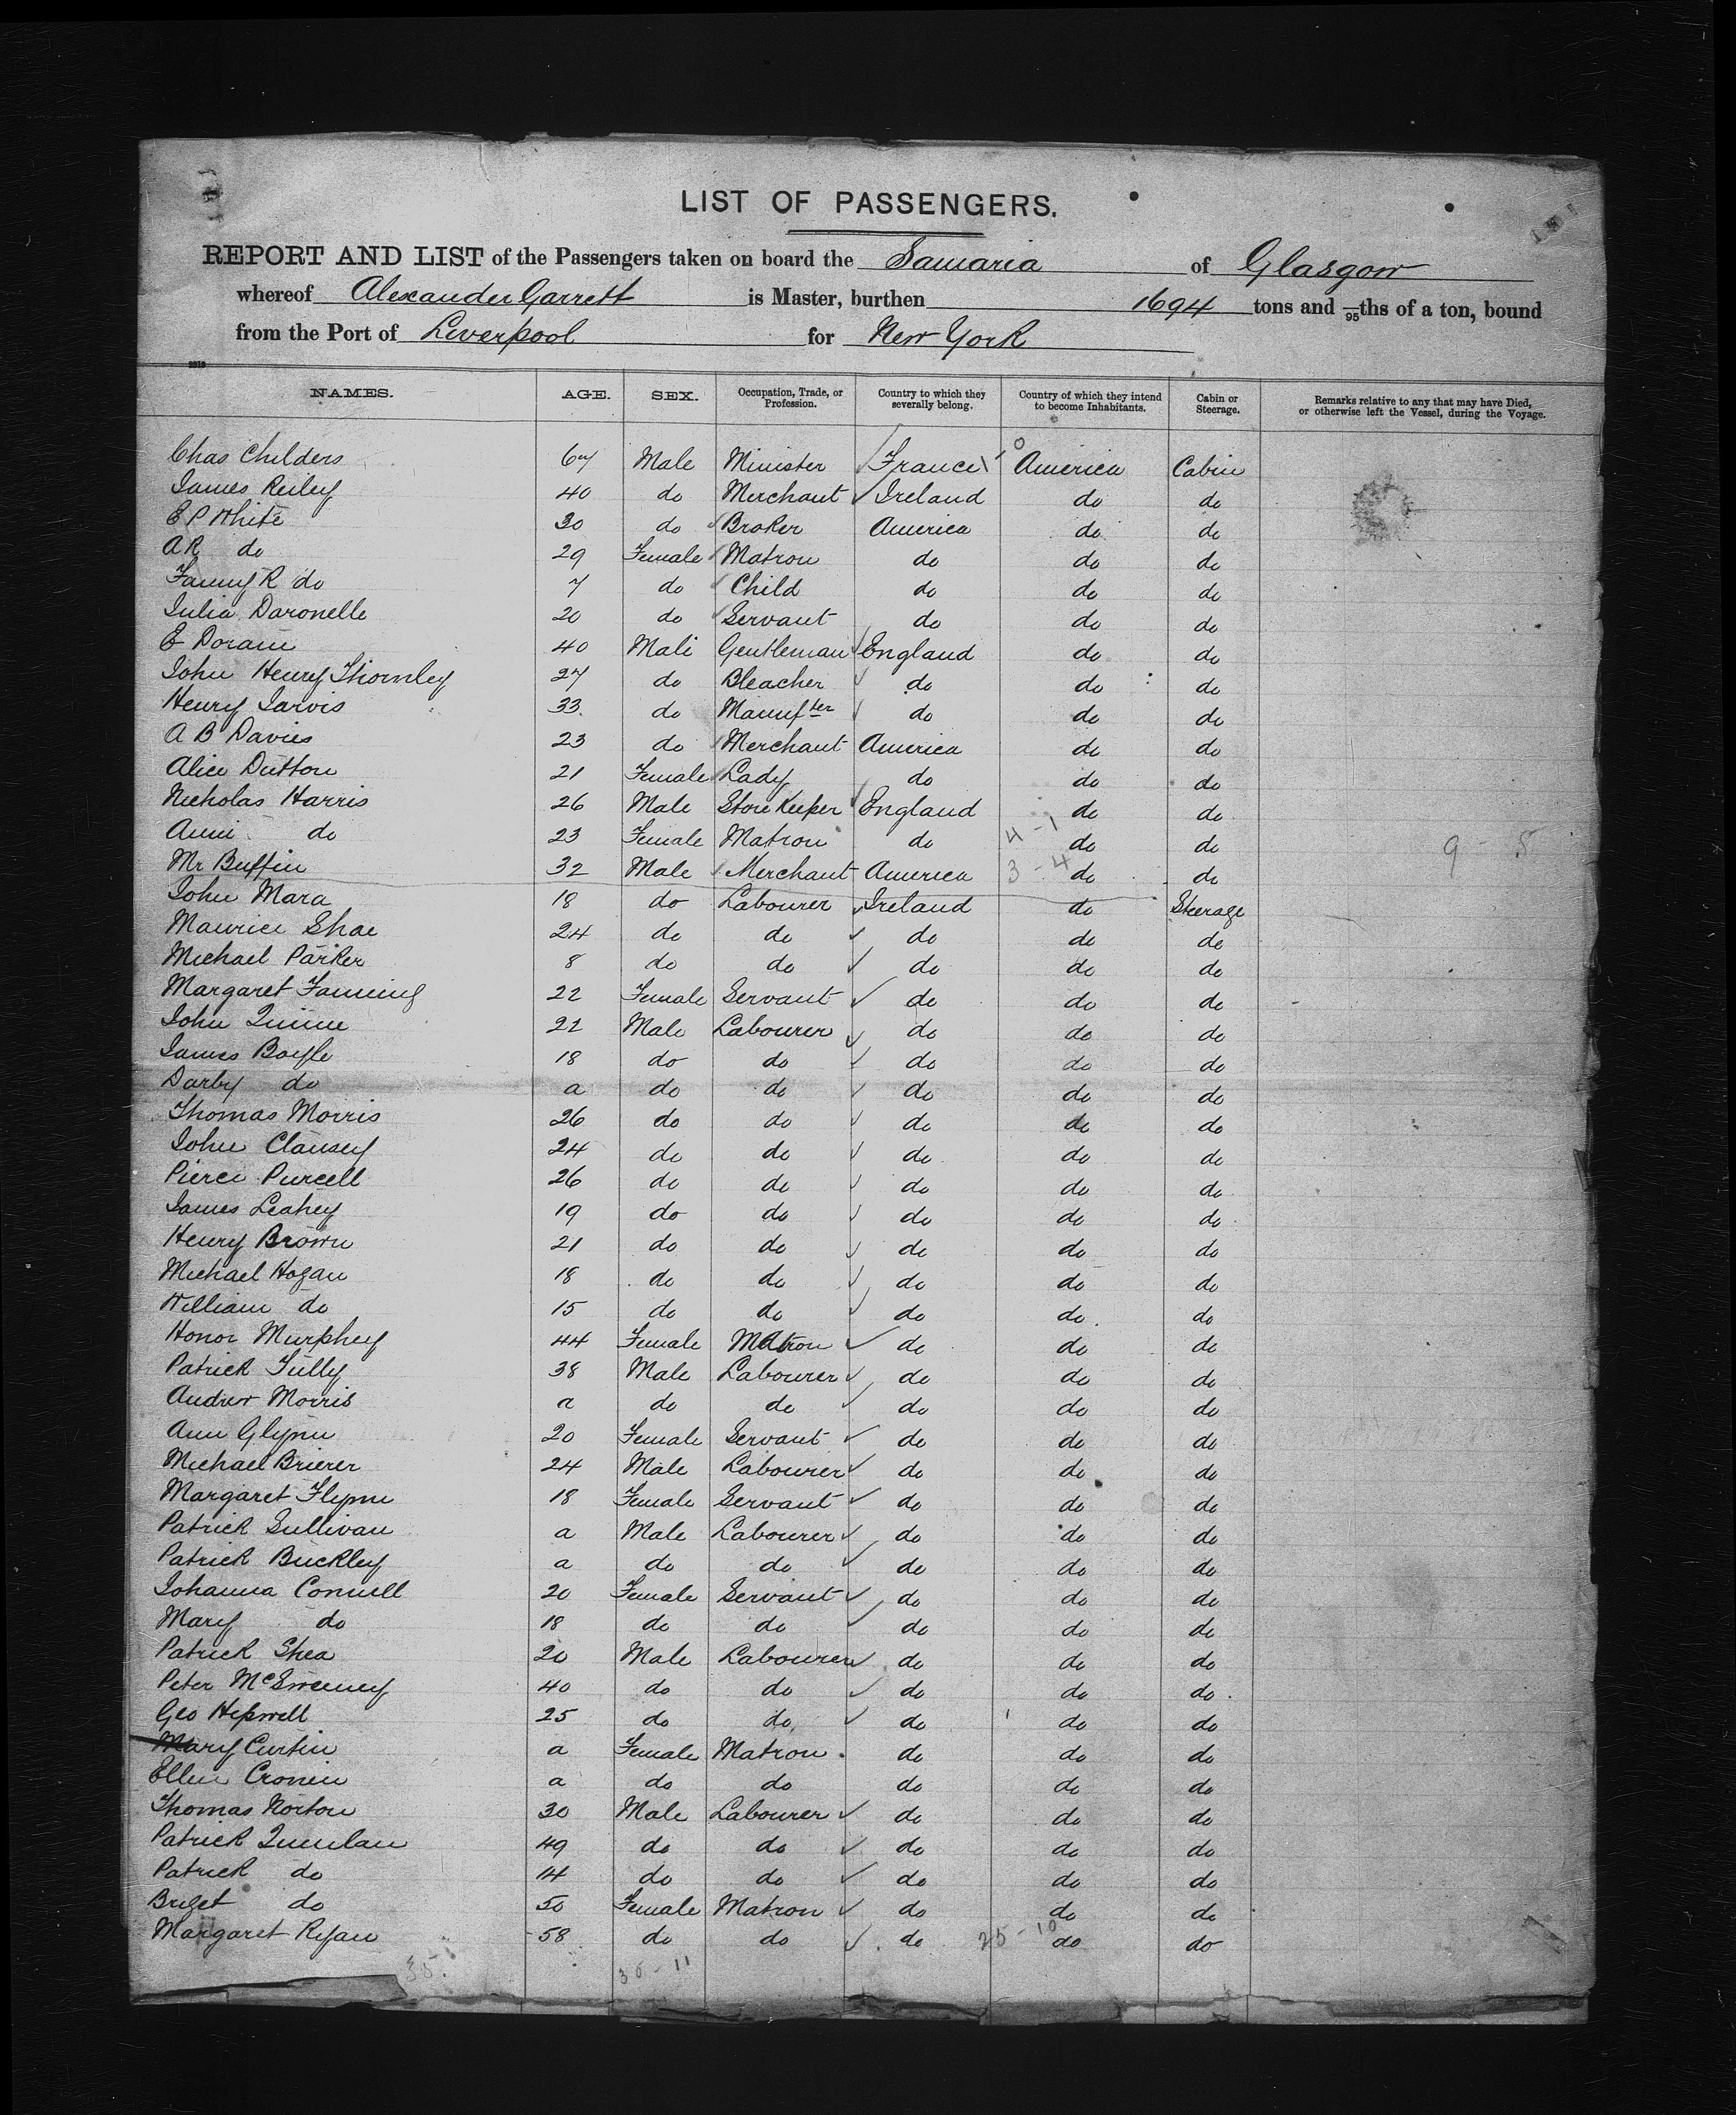 LIST OF PASSENGERS.
REPORT AND LIST of the Passengers taken on board the Samaria of Glasgow
whereof Alexander Garrett is Master, burthen 1694 tons and /95ths of a ton, bound
from the Port of Liverpool for New York
NAMES. AGE. SEX. Occupation, Trade, or Profession. Country to which they severally belong. Country of which they intend to become Inhabitants. Cabin or Steerage. Remarks relative to any that may have Died, or otherwise left the Vessel, during the Voyage.
Chas Childers 67 Male Minister France America Cabin
James Reiley 40 do Merchant Ireland do do
E P White 30 do Broker America do do
A R do 29 Female Matron do do do
Fanny R do 7 do Child do do do
Julia Daronelle 20 do Servant do do do
E Doram 40 Male Gentleman England do do
John Henry Thornley 27 do Bleacher do do do
Henry Jarvis 33 do Manufter do do do
A B Davies 23 do Merchant America do do
Alice Dutton 21 Female Lady do do do
Nicholas Harris 26 Male Store Keeper England do do
Annie do 23 Female Matron do 4-1 do do 9-5
Mr Buffin 32 Male Merchant America 3-4 do do
John Mara 18 do Labourer Ireland do Steerage
Maurice Shae 24 do do do do do
Michael Parker 8 do do do do do
Margaret Fanning 22 Female Servant do do do
John Quinn 22 Male Labourer do do do
James Boyle 18 do do do do do
Darby do a do do do do do
Thomas Morris 26 do do do do do
John Clansey 24 do do do do do
Pierce Purcell 26 do do do do do
James Leahey 19 do do do do do
Henry Brown 21 do do do do do
Michael Hogan 18 do do do do do
William do 15 do do do do do
Honor Murphey 44 Female Matron do do do
Patrick Tully 38 Male Labourer do do do
Andrew Morris a do do do do do
Ann Glynn 20 Female Servant do do do
Michael Brierer 24 Male Labourer do do do
Margaret Flynn 18 Female Servant do do do
Patrick Sullivan a Male Labourer do do do
Patrick Buckley a do do do do do
Johanna Connell 20 Female Servant do do do
Mary do 18 do do do do do
Patrick Shea 20 Male Labourer do do do
Peter McSweeney 40 do do do do do
Geo Hepwell 25 do do do do do
Mary Curtin a Female Matron do do do
Ellen Cronin a do do do do do
Thomas Norton 30 Male Labourer do do do
Patrick Quinlan 49 do do do do do
Patrick do 14 do do do do do
Brizet do 50 Female Matron do do do
Margaret Ryan 58 do do do 25-10 do do
35-11